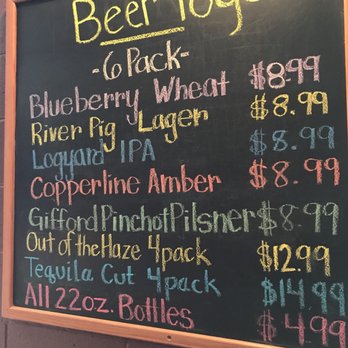 Beer Togo
-6 Pack-
Blueberry Wheat $8.99
River Pig Lager $8.99
Logyard IPA $8.99
Copperline Amber $8.99
Gifford Pinchot Pilsner $8.99
Out of the Haze 4pack $12.99
Tequila Cut 4pack $14.99
All 22oz. Bottles $4.99